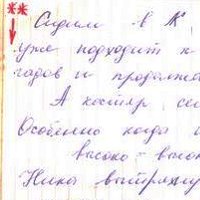 Сидим в К
уже подходит к
гадов и продолжа
А костёр си
Особенно когда
высоко-высок
Ника вытряху